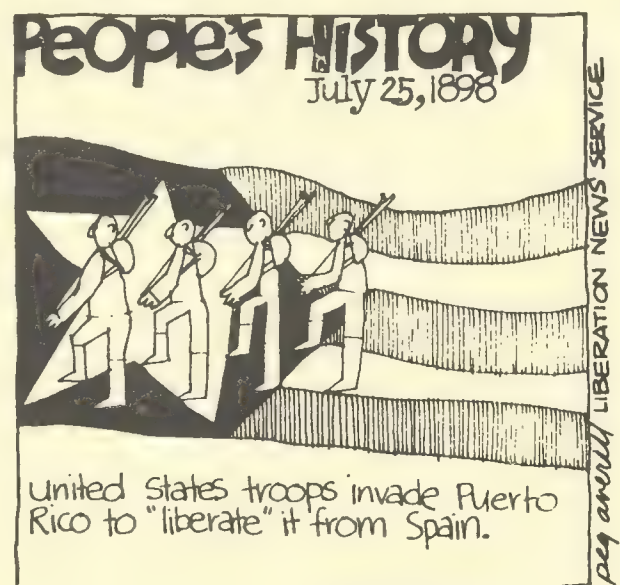 PEOPLE'S HISTORY
July 25, 1898
United States troops invade Puerto
Rico to "liberate" it from Spain.
peg averill LIBERATION NEWS SERVICE